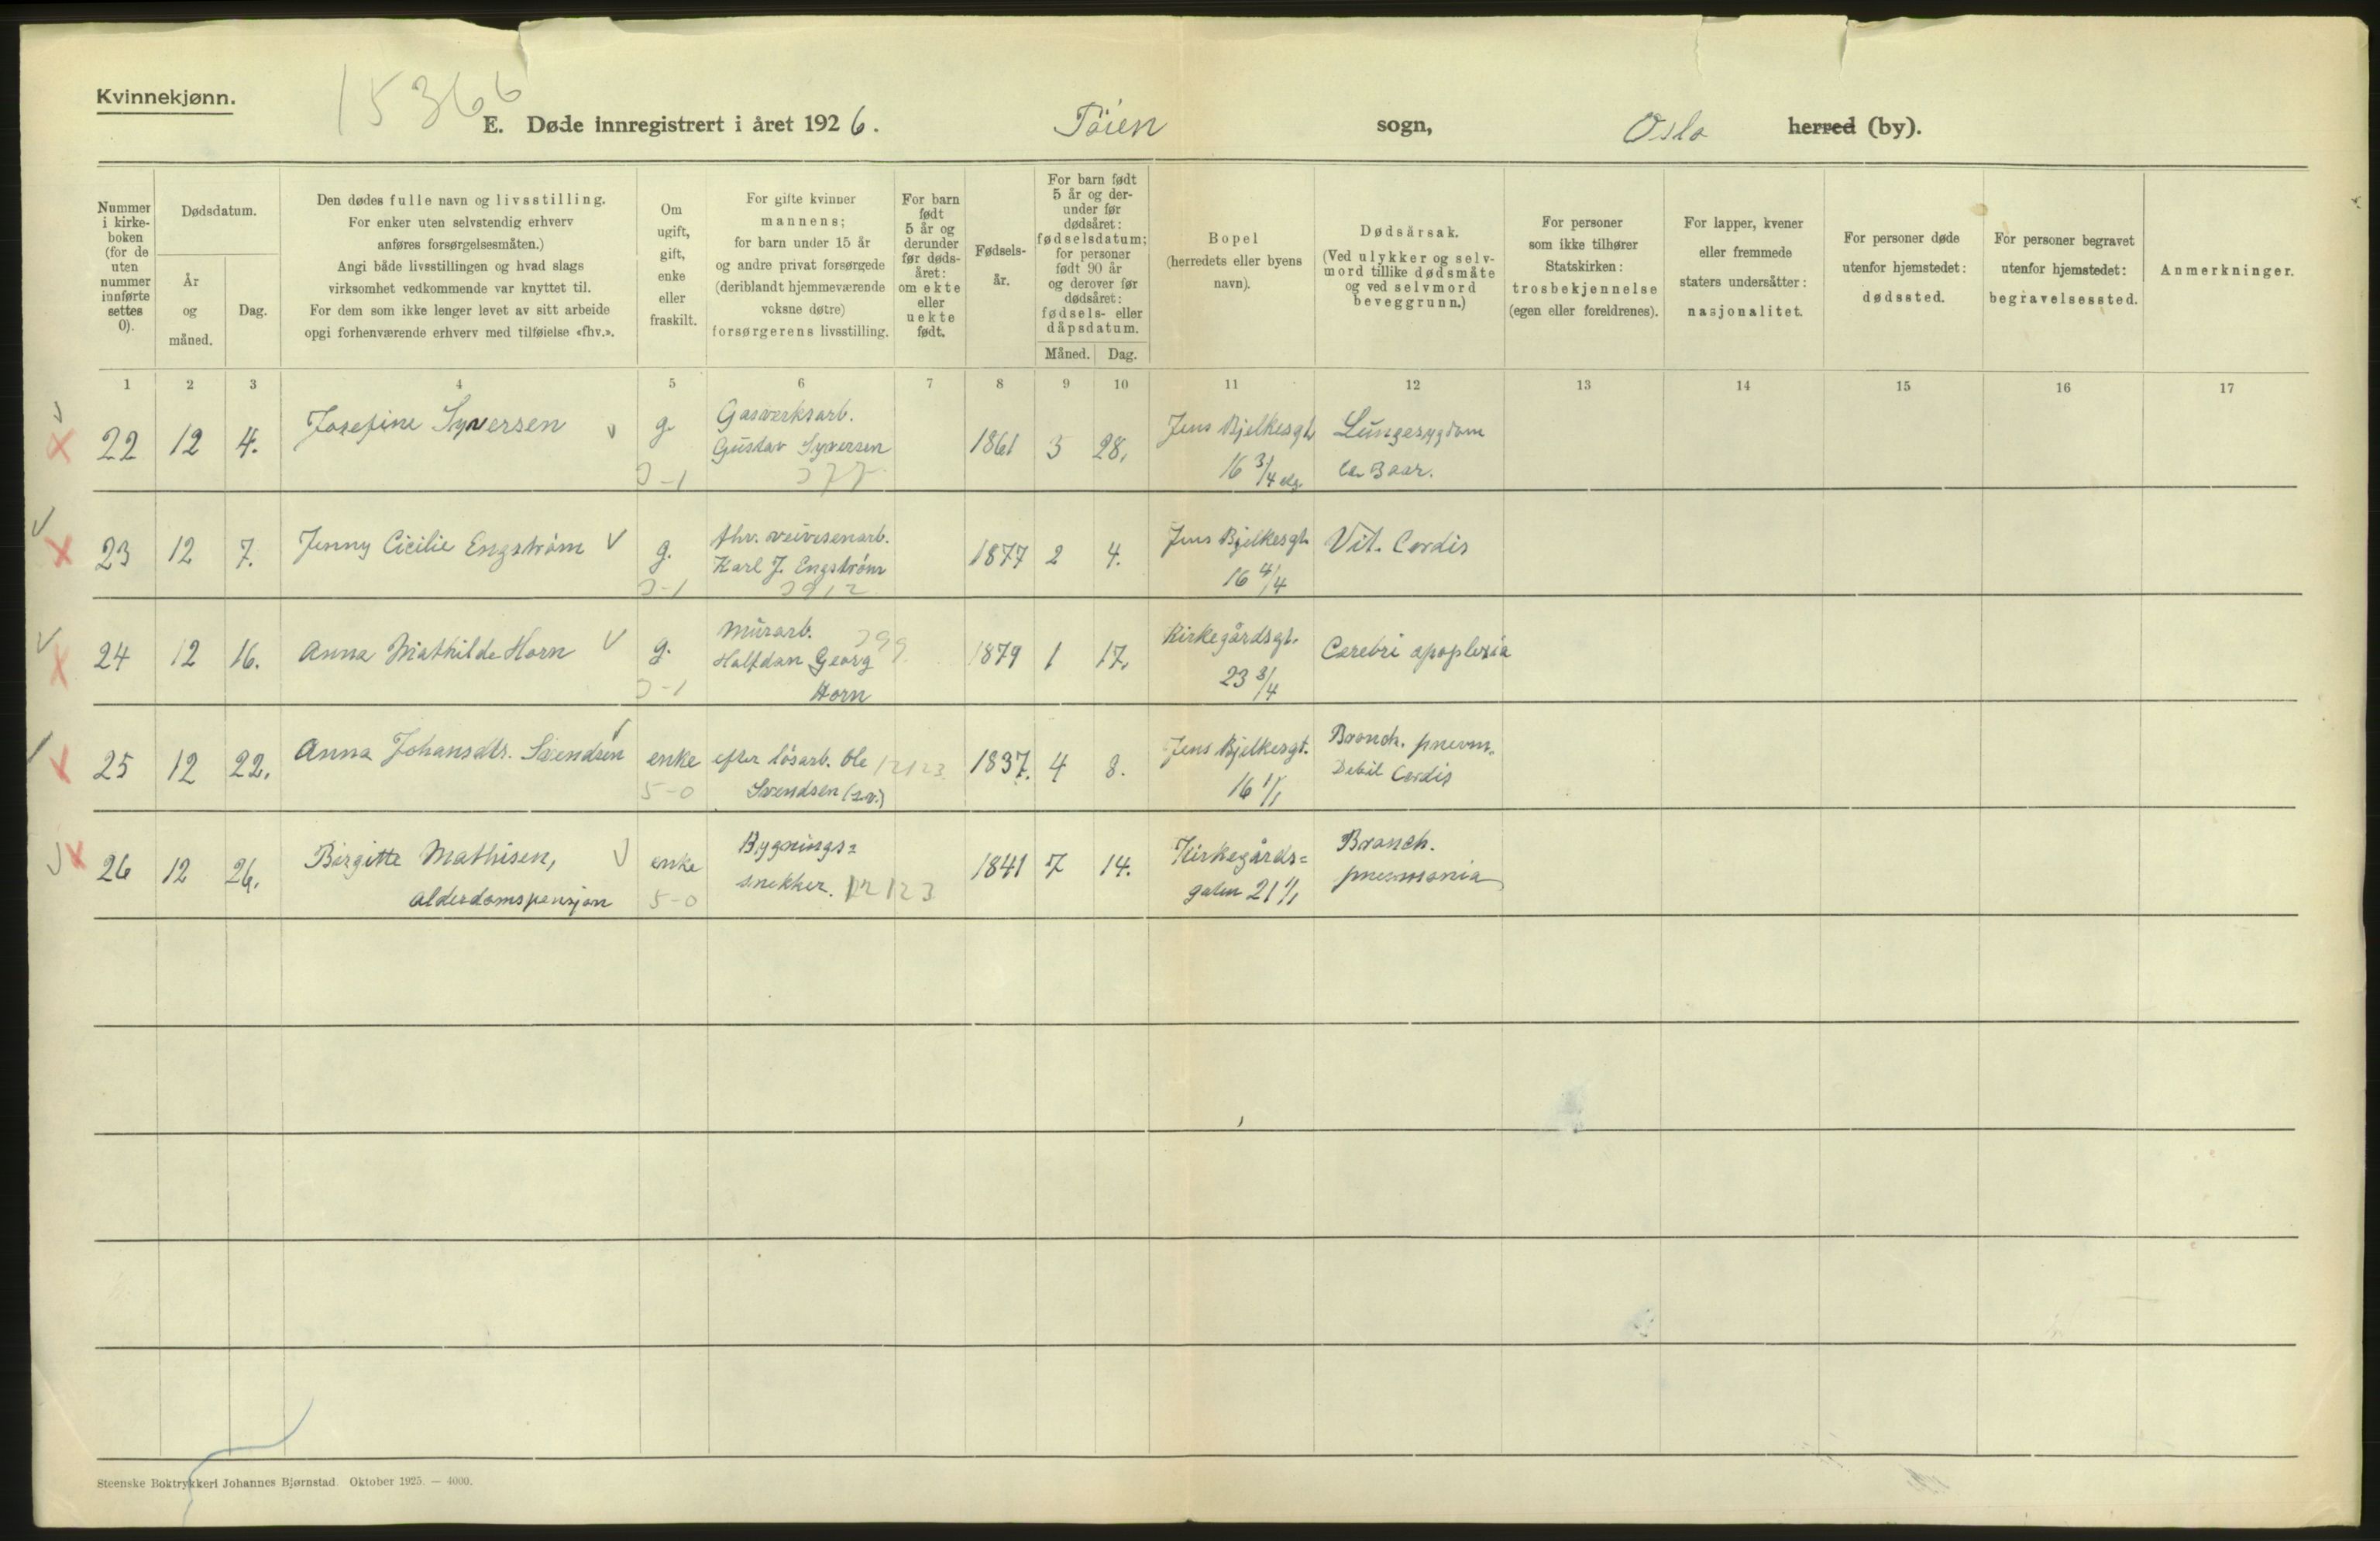 Kvinnekjønn.
15366
E. Døde innregistrert i året 1926. Töien sogn, Oslo herred (by).
Nummer i kirke-boken (for de uten nummer innførte settes 0).
Dødsdatum.
År og måned.
Dag.
Den dødes fulle navn og livsstilling.
For enker uten selvstendig erhverv
anføres forsørgelsesmåten.)
Angi både livsstillingen og hvad slags
virksomhet vedkommende var knyttet til.
For dem som ikke lenger levet av sitt arbeide
opgi forhenværende erhverv med tilføielse «fhv.».
Om ugift, gift, enke eller fraskilt.
For gifte kvinner
mannens;
for barn under 15 år
og andre privat forsørgede
(deriblandt hjemmeværende
voksne døtre)
forsørgerens livsstilling.
For barn født 5 år og derunder før døds-året: om ekte eller uekte født.
Fødsels-år.
For barn født 5 år og der-under før dødsåret: fødselsdatum; for personer født 90 år og derover før dødsåret: fødsels- eller dåpsdatum.
Måned. Dag.
Bopel
(herredets eller byens
navn).
Dødsårsak.
(Ved ulykker og selv-
mord tillike dødsmåte
og ved selvmord
beveggrunn.)
For personer
som ikke tilhører
Statskirken:
trosbekjennelse
(egen eller foreldrenes).
For lapper, kvener
eller fremmede
staters undersåtter:
nasjonalitet.
For personer døde
utenfor hjemstedet:
dødssted.
For personer begravet
utenfor hjemstedet:
begravelsessted.
Anmerkninger.
1 2 3 4 5 6 7 8 9 10 11 12 13 14 15 16 17
22 12 4. Josefine Syversen g. Gasverksarb. 1861 3 28. Jens Bjelkesgt. Lungesygdom
Gustav Syversen 16 3/4 ca 3 aar.
23 12 7. Jenny Cicilie Engström g. fhv. veivesenarb. 1877 2 4. Jens Bjelkesgt. Vit. Cordis
Karl J. Engström 16 4/4
24 12 16. Anna Mathilde Horn g. Murarb. 1879 1 17. Kirkegårdsgt. Cerebri apoplexia
Halfdan Georg 23 3/4
Horn
25 12 22. Anna Johansdtr. Svendsen enke efter lösarb. Ole 12123 1837. 4 8. Jens Bjelkesgt. Bronch. pneum.
5-0 Svendsen 16 1/1 Debil Cordis
26 12 26. Birgitte Mathisen, enke Bygnings= 1841 7 14. Kirkegårds= Bronch.
alderdomspensjon 5-0 snekker. 12123 gaten 21 1/1 pneumonia
Steenske Boktrykkeri Johannes Bjørnstad. Oktober 1925. — 4000.